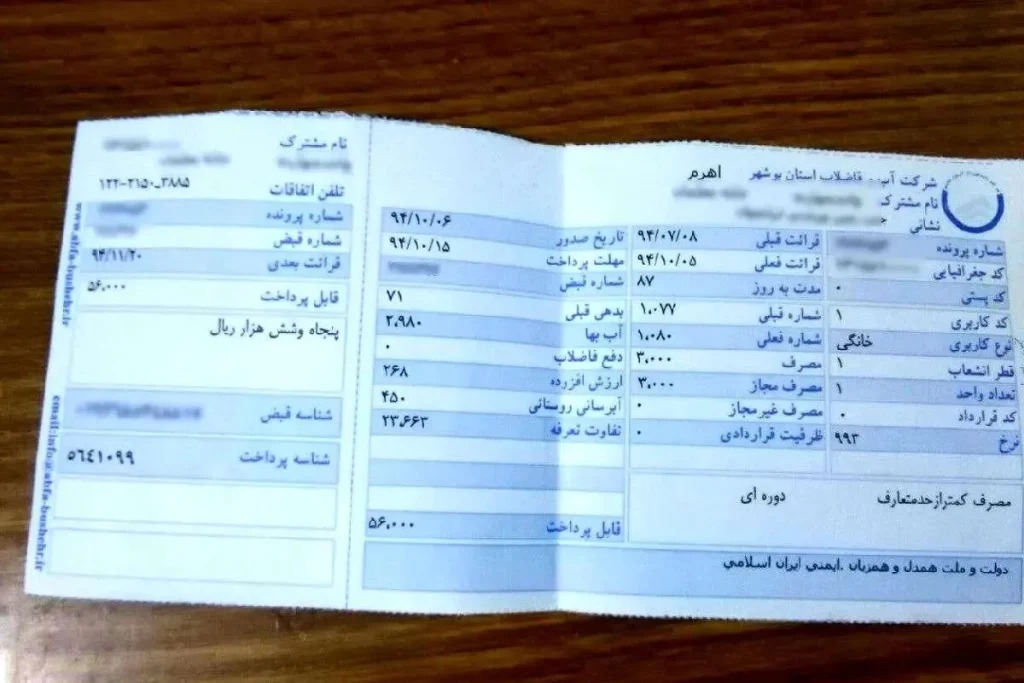 شرکت آب و فاضلاب استان بوشهر اهرم
نام مشترک
نشانی
شماره پرونده
کد جغرافیایی
کد پستی ۰
کد کاربری ۱
نوع کاربری خانگی
قطر انشعاب ۱
تعداد واحد ۱
کد قرارداد ۰
نرخ ۹۹۳
قرائت قبلی ۹۴/۰۷/۰۸
قرائت فعلی ۹۴/۱۰/۰۵
مدت به روز ۸۷
شماره قبلی ۱,۰۷۷
شماره فعلی ۱,۰۸۰
مصرف ۳,۰۰۰
مصرف مجاز ۳,۰۰۰
مصرف غیر مجاز ۰
ظرفیت قراردادی ۰
مصرف کمترازحدمتعارف دوره ای
تاریخ صدور ۹۴/۱۰/۰۶
مهلت پرداخت ۹۴/۱۰/۱۵
شماره قبض
بدهی قبلی ۷۱
آب بها ۲,۹۸۰
دفع فاضلاب ۰
ارزش افزوده ۲۶۸
آبرسانی روستائی ۴۵۰
تفاوت تعرفه ۲۳,۶۶۳
قابل پرداخت ۵۶,۰۰۰
دولت و ملت همدل و همزبان .ایمنی ایران اسلامي
نام مشترک
تلفن اتفاقات ۱۲۲-۲۱۵۰-۳۸۸۵
شماره پرونده
شماره قبض
قرائت بعدی ۹۴/۱۱/۲۰
قابل پرداخت ۵۶,۰۰۰
پنجاه وشش هزار ریال
شناسه قبض
شناسه پرداخت ۵۶۴۱۰۹۹
www.abfa-bushehr.ir
email:info@abfa-bushehr.ir